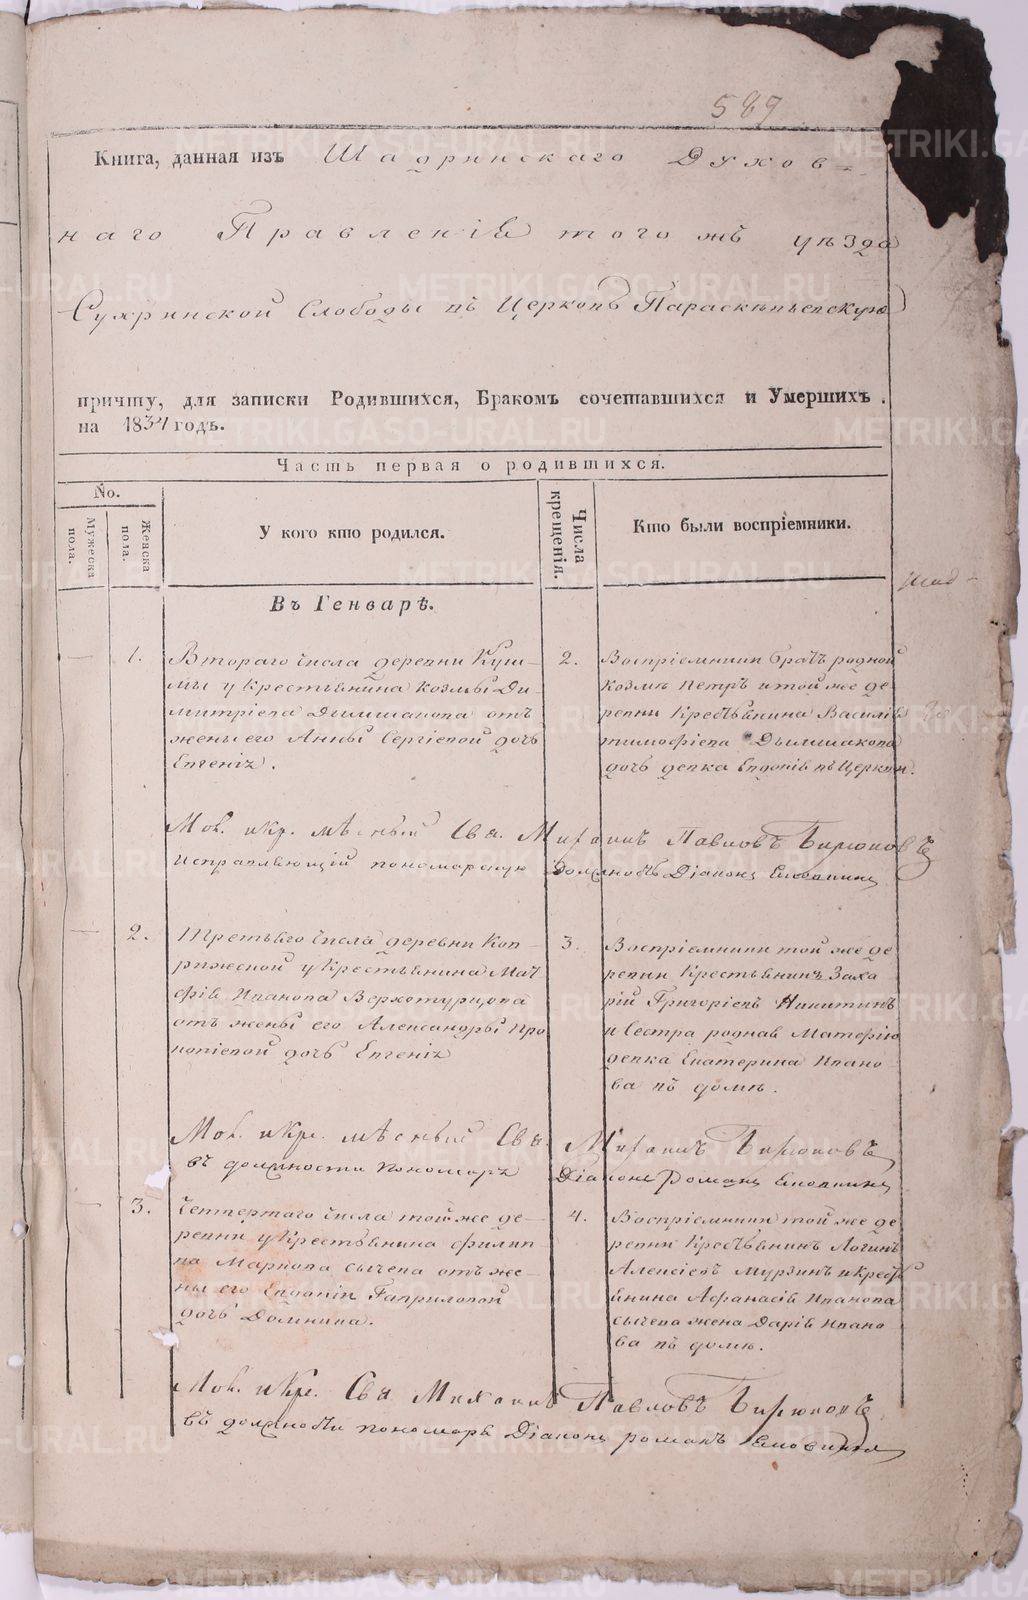 589
Книга, данная изъ Шадринскаго Духов=
наго Правленія того жъ уѣзда
Сухринской Слободы въ Церковь Параскѣвьевскую
причту, для записки Родившихся, Бракомъ сочетавшихся и Умершихъ
на 1834 годъ.
Часть первая о родившихся.
No.
Мужеска пола.
Женска пола.
У кого кто родился.
Числа крещенія.
Кто были воспріемники.
Въ Генварѣ.
1.
Втораго числа деревни Куш-
мы у Крестьянина Козмы Ди-
митріева Дымшакова отъ
жены его Анны Сергіевой дочь
Евгенія.
2.
Воспріемники братъ родной
Козмѣ Петръ и той же де-
ревни Крестьянина Василія
тимофіева Дымшакова
дочь девка Евдокія въ Церкви.
Мол. и кр. Свя. Михаилъ Павловъ Бирюковъ
исправляющій пономарскую должность Діаконъ
2.
Третьяго числа деревни Ков-
рижской у Крестьянина Мат
фія Иванова Верхотурцова
отъ жены его Александры Про
копіевой дочь Евгенія
3.
Воспріемники той же де
ревни Крестьянинъ Заха
рій Григоріевъ Никитинъ
и Сестра родная Матфію
девка Екатерина Ивано-
ва въ домѣ.
Мол. и кр. Свя. Михаилъ Бирюковъ
въ должности пономаря Діаконъ Романъ
3.
Четвертаго числа той же де-
ревни у Крестьянина Филип-
па Маркова Сычева отъ же-
ны его Евдокіи Гавриловой
дочь Домнина.
4.
Воспріемники той же де
ревни Крестьянинъ Логинъ
Алексіевъ Мурзинъ и крест
янина Афанасія Иванова
сычева жена Дарія Ивано
ва въ домѣ.
Мол. и кр. Свя Михаилъ Павловъ Бирюковъ
въ должности пономаря Діаконъ романъ
METRIKI.GASO-URAL.RU